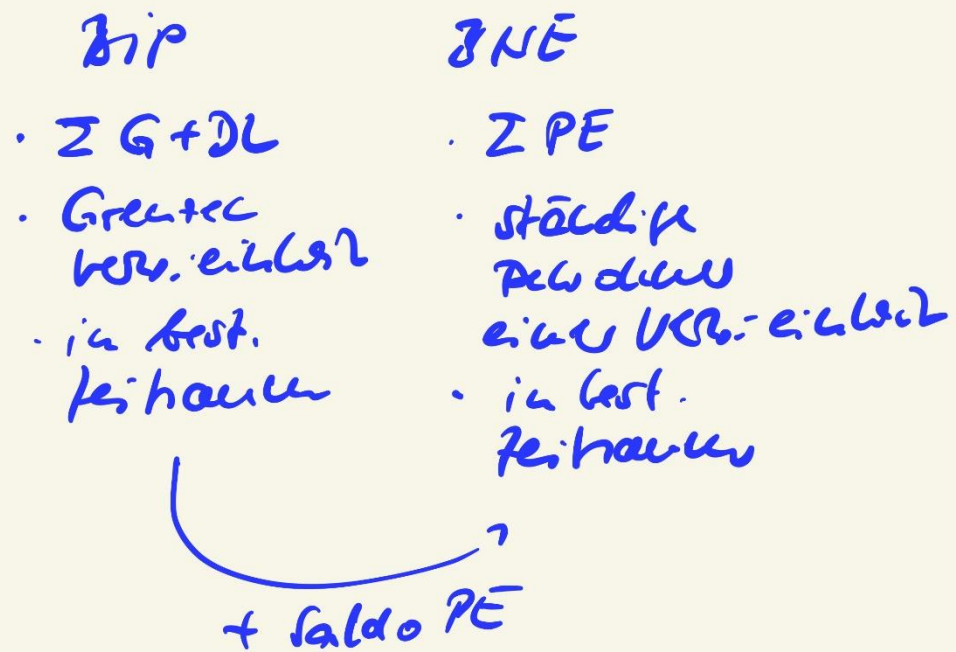 BIP
· Σ G + DL
· Grenzen
verw. einheit
· in best.
Zeitraum
BNE
· Σ PE
· ständige
Bewohner
einer Verw.-einheit
· in best.
Zeitraum
+ Saldo PE